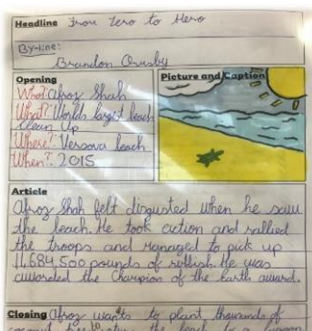 Headline From Zero to Hero
By-line:
Brandon
Opening
Who? Afroz Shah
What? Worlds largest beach
Clean Up
Where? Versova beach
When? 2015
Picture and Caption
Article
Afroz Shah felt disgusted when he saw
the beach. He took action and rallied
the troops and managed to pick up
11,684,500 pounds of rubbish. He was
awarded the Champion of the Earth award.
Closing Afroz wants to plant thousands of